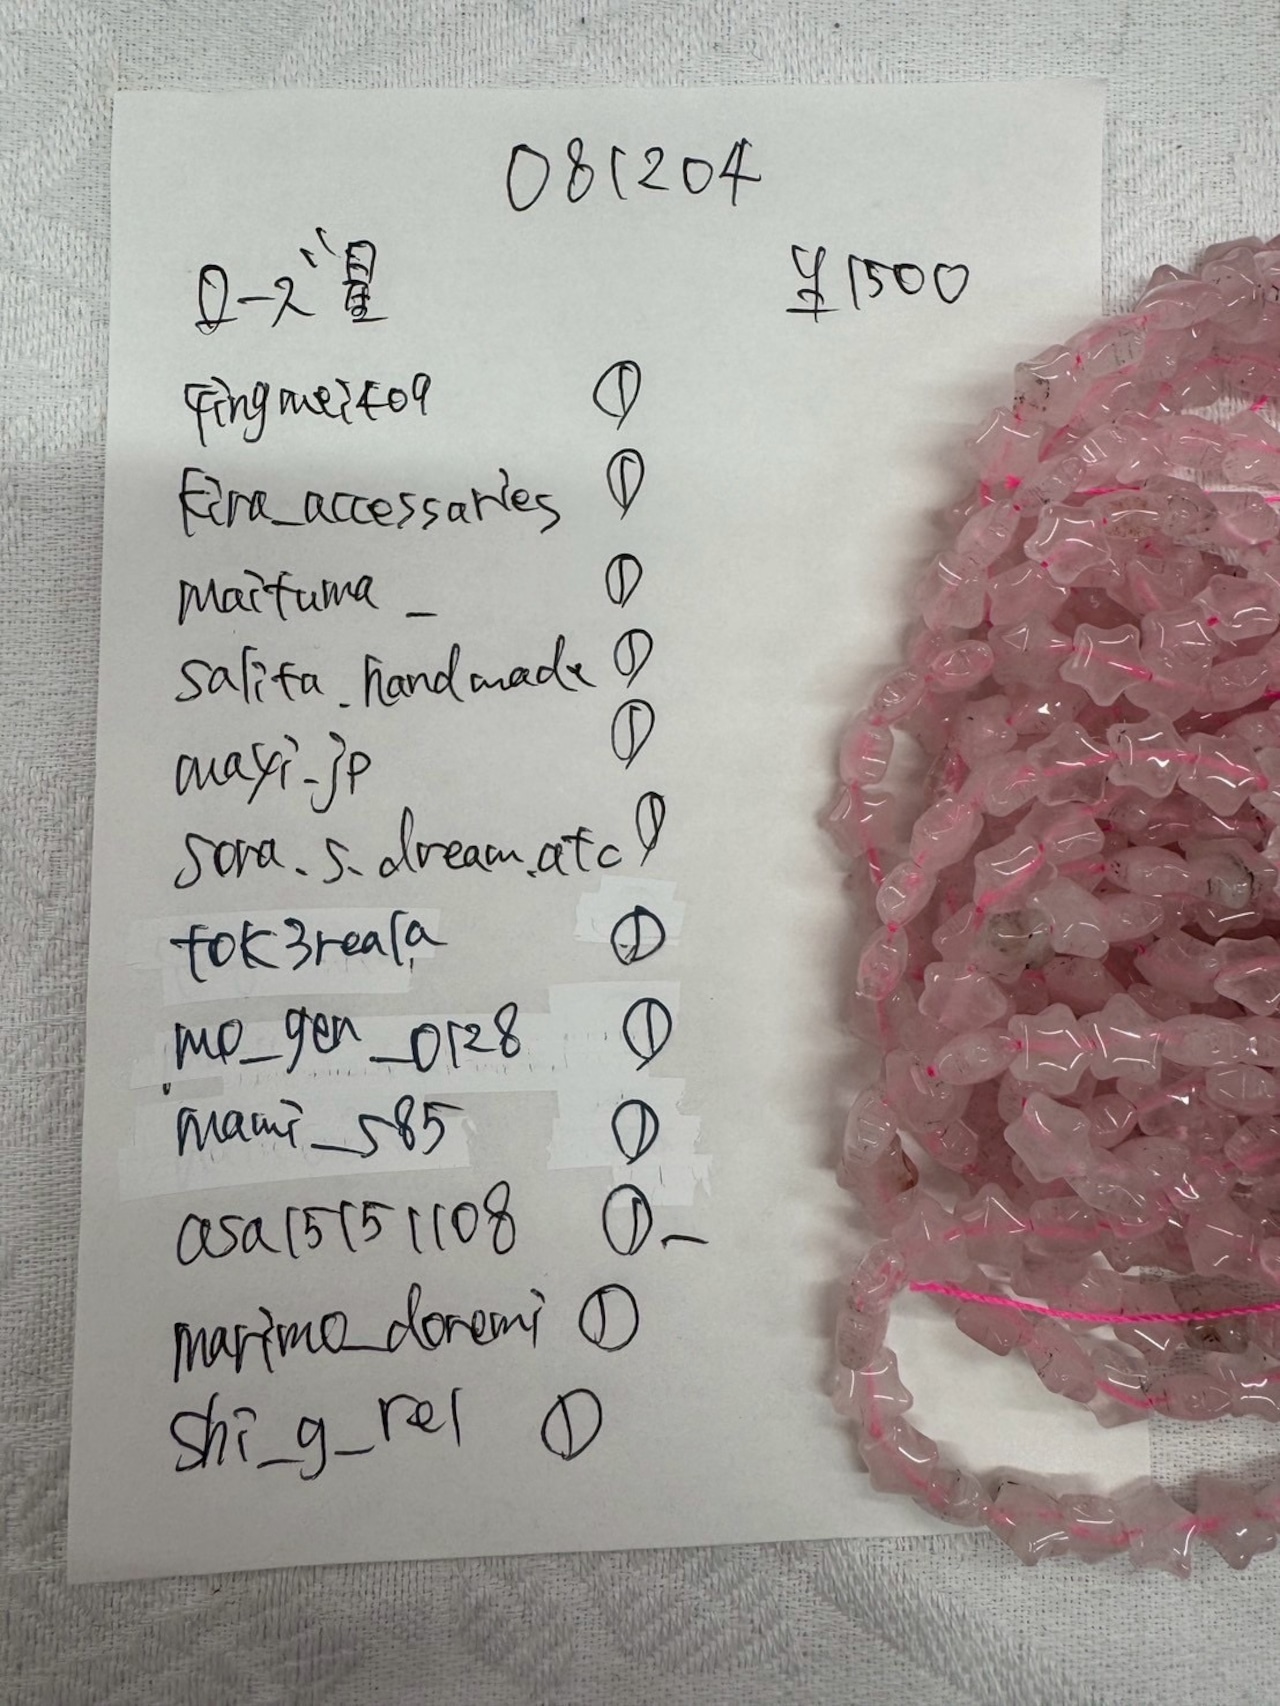 081204
ローズ星 ¥1500
qingmei409 ①
kira_accessaries ①
maituma_ ①
salita.handmade ①
mayi-jp ①
sora.s.dream.atc ①
tok3reala ①
mo_gen_0128 ①
mami_s85 ①
asa15151108 ①-
marimo_doremi ①
shi_g_rel ①